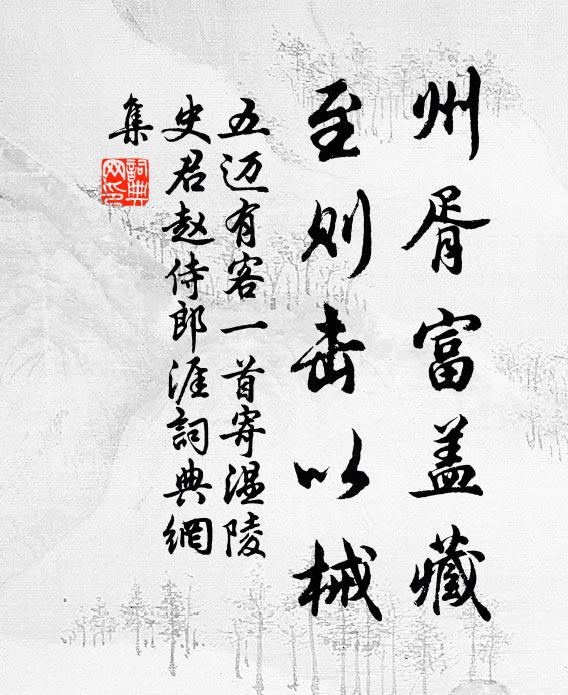 州胥富盖藏
至则击以械
五迈有客一首寄温陵
史君赵侍郎涯詞典網
集
詞典網印